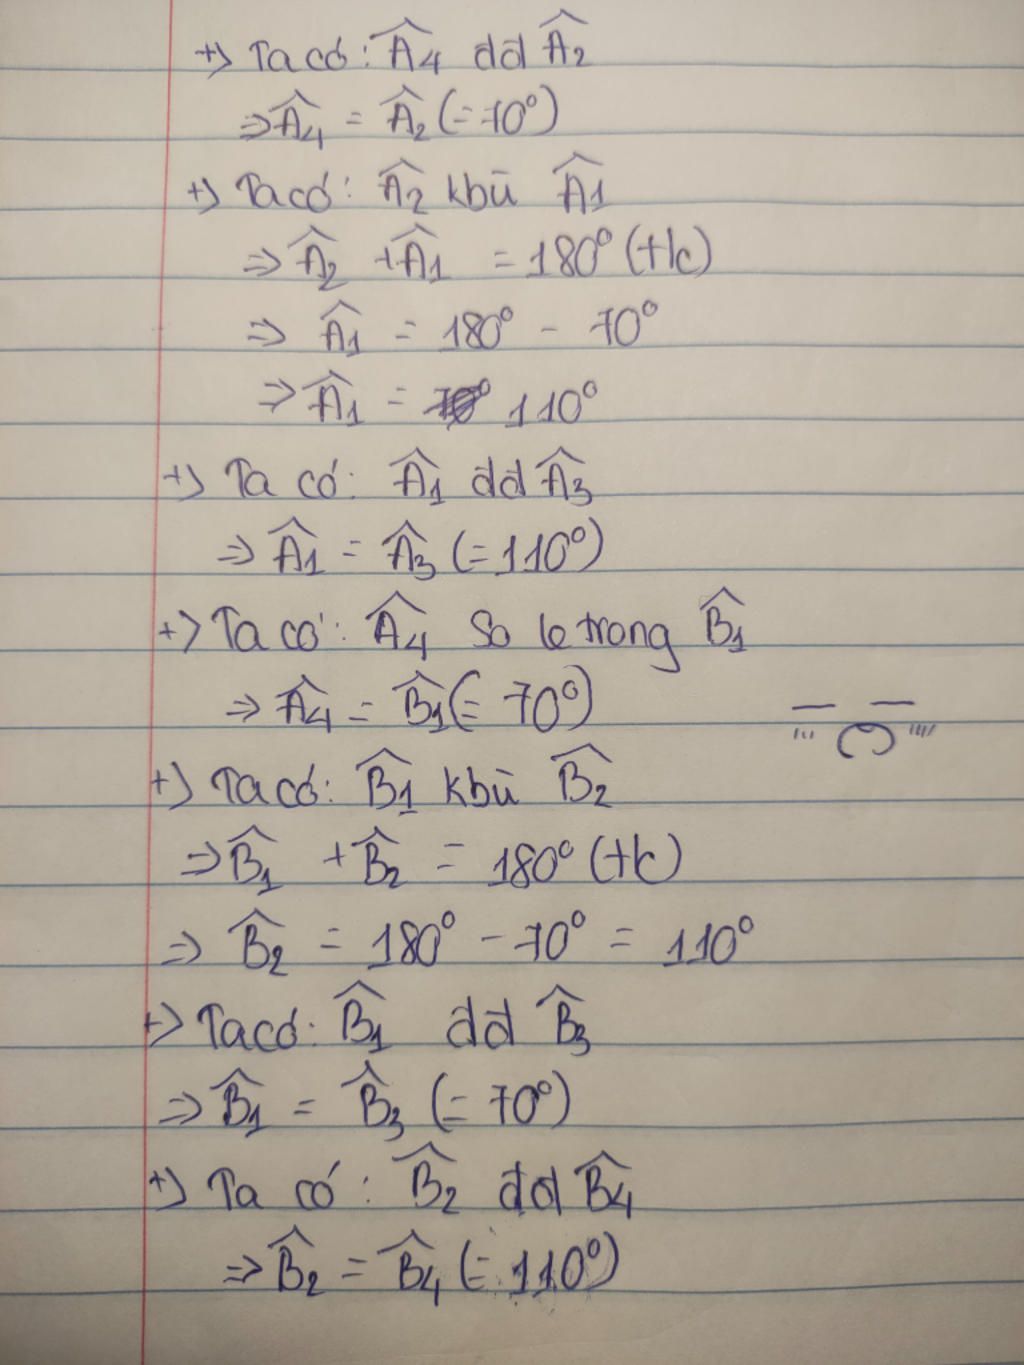 +) Ta có: Â4 dd Â2
⇒ Â4 = Â2 (= 70°)
+) Ta có: Â2 kbù Â1
⇒ Â2 + Â1 = 180° (t/c)
⇒ Â1 = 180° - 70°
⇒ Â1 = 110°
+) Ta có: Â1 dd Â3
⇒ Â1 = Â3 (= 110°)
+) Ta có: Â4 so le trong B̂1
⇒ Â4 = B̂1 (= 70°)
+) Ta có: B̂1 kbù B̂2
⇒ B̂1 + B̂2 = 180° (t/c)
⇒ B̂2 = 180° - 70° = 110°
+) Ta có: B̂1 dd B̂3
⇒ B̂1 = B̂3 (= 70°)
+) Ta có: B̂2 đd B̂4
⇒ B̂2 = B̂4 (= 110°)